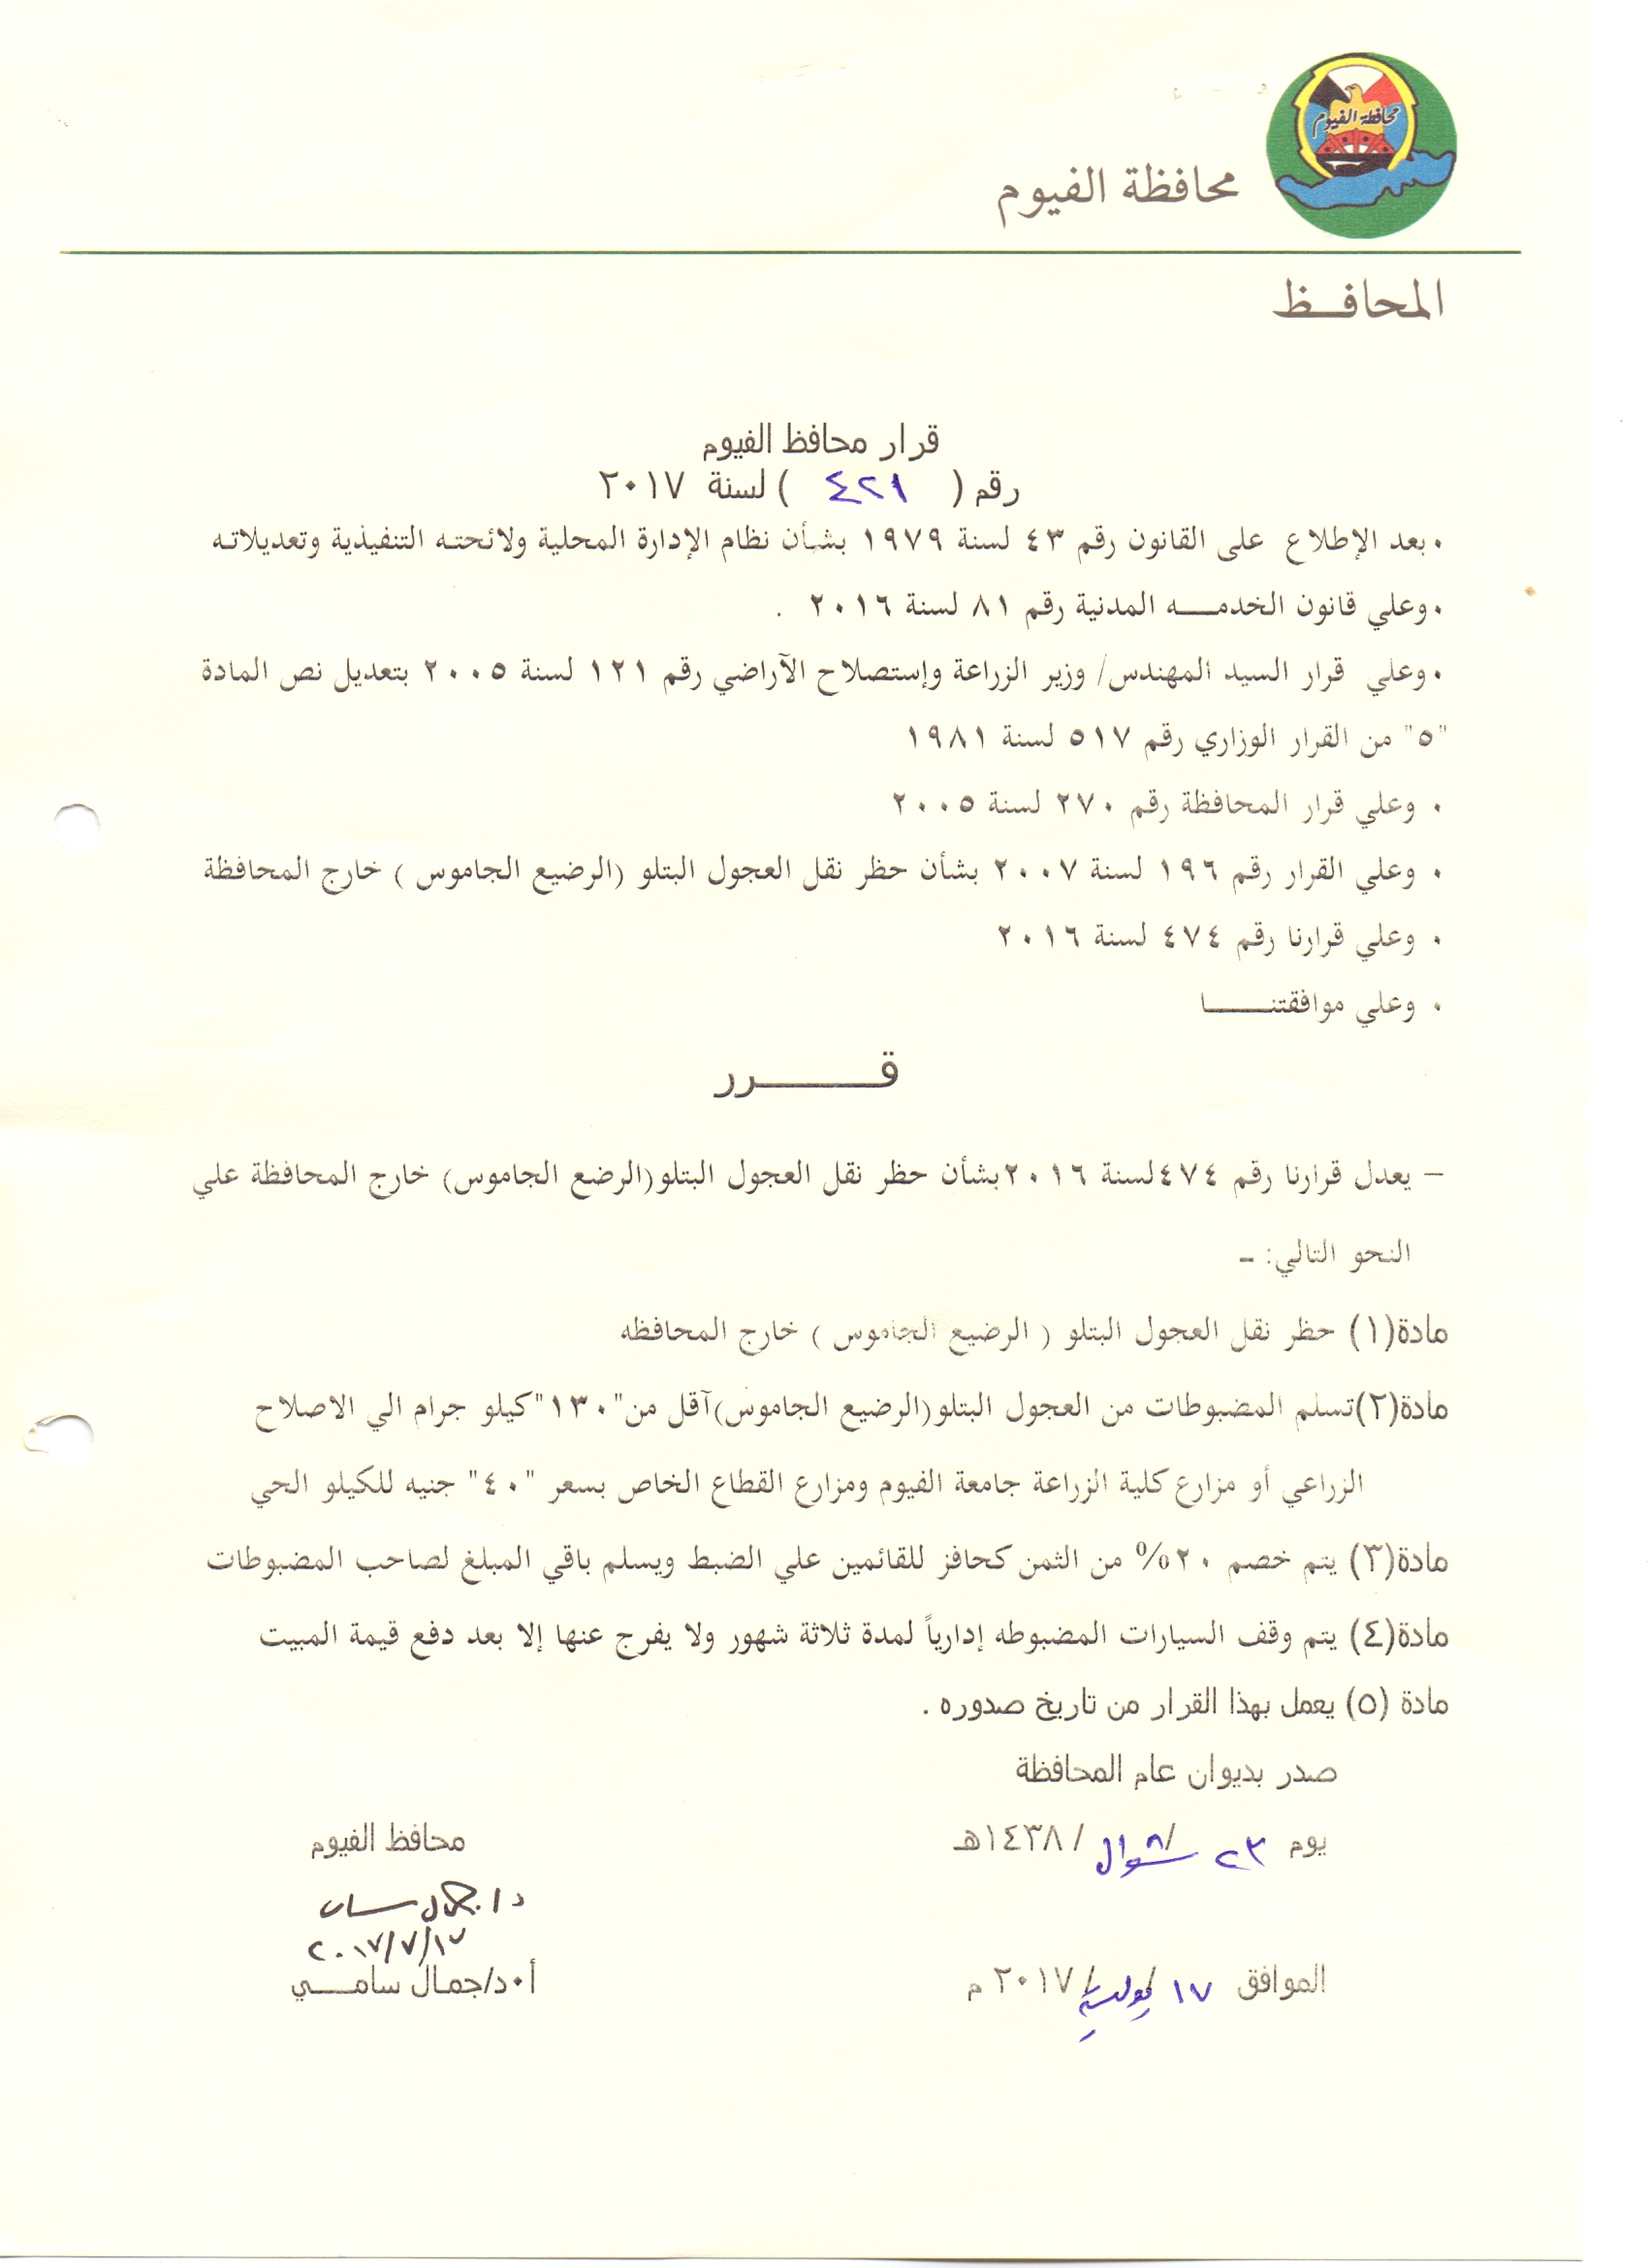 محافظة الفيوم
محافظة الفيوم
المحافــظ
قرار محافظ الفيوم
رقم ( ٤٢١ ) لسنة ٢٠١٧
٠ بعد الإطلاع على القانون رقم ٤٣ لسنة ١٩٧٩ بشأن نظام الإدارة المحلية ولائحته التنفيذية وتعديلاته
٠ وعلي قانون الخدمـــه المدنية رقم ٨١ لسنة ٢٠١٦ .
٠ وعلي قرار السيد المهندس/ وزير الزراعة وإستصلاح الآراضي رقم ١٢١ لسنة ٢٠٠٥ بتعديل نص المادة
"٥" من القرار الوزاري رقم ٥١٧ لسنة ١٩٨١
٠ وعلي قرار المحافظة رقم ٢٧٠ لسنة ٢٠٠٥
٠ وعلي القرار رقم ١٩٦ لسنة ٢٠٠٧ بشأن حظر نقل العجول البتلو (الرضيع الجاموس ) خارج المحافظة
٠ وعلي قرارنا رقم ٤٧٤ لسنة ٢٠١٦
٠ وعلي موافقتنــــــا
قـــــــــرر
– يعدل قرارنا رقم ٤٧٤لسنة ٢٠١٦بشأن حظر نقل العجول البتلو(الرضع الجاموس) خارج المحافظة علي
النحو التالي: ـ
مادة(١) حظر نقل العجول البتلو ( الرضيع الجاموس ) خارج المحافظه
مادة(٢)تسلم المضبوطات من العجول البتلو(الرضيع الجاموس)آقل من"١٣٠"كيلو جرام الي الاصلاح
الزراعي أو مزارع كلية الزراعة جامعة الفيوم ومزارع القطاع الخاص بسعر "٤٠" جنيه للكيلو الحي
مادة(٣) يتم خصم ٢٠% من الثمن كحافز للقائمين علي الضبط ويسلم باقي المبلغ لصاحب المضبوطات
مادة(٤) يتم وقف السيارات المضبوطه إدارياً لمدة ثلاثة شهور ولا يفرج عنها إلا بعد دفع قيمة المبيت
مادة (٥) يعمل بهذا القرار من تاريخ صدوره .
صدر بديوان عام المحافظة
يوم ٢٣ / شوال / ١٤٣٨هـ
محافظ الفيوم
د ا جمال سامى
٢٠١٧/٧/١٧
الموافق ١٧ / يوليه / ٢٠١٧ م
أ٠د/جمال سامــــي